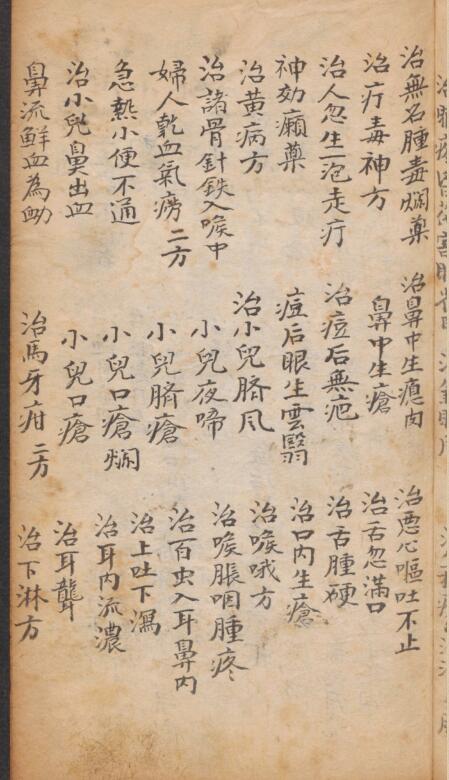 治無名腫毒爛藥
治疔毒神方
治人忽生一疱走疔
神効癩藥
治黃病方
治諸骨針鉄入喉中
婦人乾血氣癆 二方
急熱小便不通
治小兒鼻出血
鼻流鮮血為衂
治鼻中生瘜肉
鼻中生瘡
治痘后無疤
痘后眼生雲翳
治小兒臍風
小兒夜啼
小兒臍瘡
小兒口瘡爛
小兒口瘡
治馬牙疳 二方
治惡心嘔吐不止
治舌忽滿口
治舌腫硬
治口内生瘡
治喉哦方
治喉脹咽腫疼
治百虫入耳鼻内
治上吐下瀉
治耳内流濃
治耳聾
治下淋方